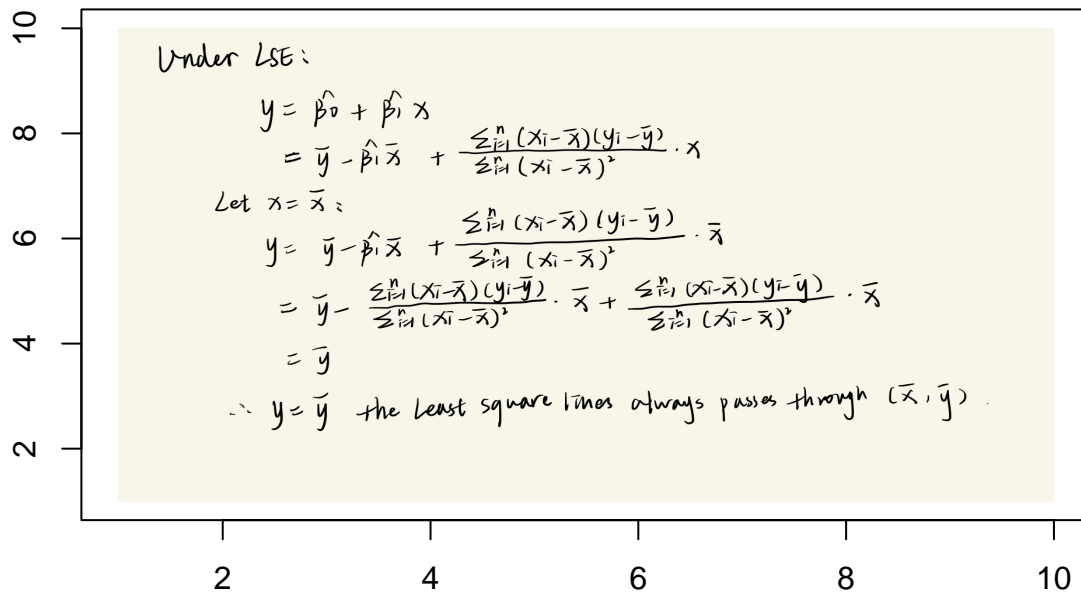 Under LSE:
y = β̂0 + β̂1 x
= ȳ - β̂1 x̄ + \frac{∑_{i=1}^{n} (xi - x̄)(yi - ȳ)}{∑_{i=1}^{n} (xi - x̄)²} · x
Let x = x̄ :
y = ȳ - β̂1 x̄ + \frac{∑_{i=1}^{n} (xi - x̄)(yi - ȳ)}{∑_{i=1}^{n} (xi - x̄)²} · x̄
= ȳ - \frac{∑_{i=1}^{n} (xi - x̄)(yi - ȳ)}{∑_{i=1}^{n} (xi - x̄)²} · x̄ + \frac{∑_{i=1}^{n} (xi - x̄)(yi - ȳ)}{∑_{i=1}^{n} (xi - x̄)²} · x̄
= ȳ
∴ y = ȳ the Least square lines always passes through (x̄, ȳ).
10
8
6
4
2
2 4 6 8 10